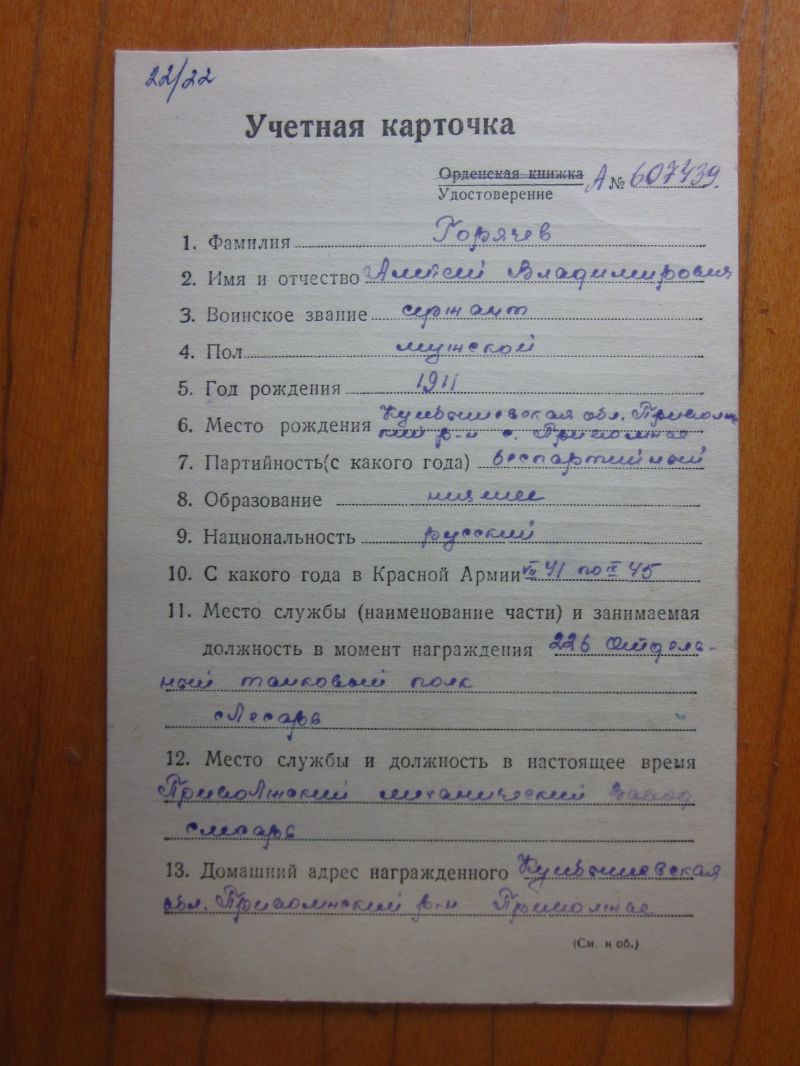 22/22
Учетная карточка
Орденская книжка
Удостоверение А № 607439.
1. Фамилия Горячев
2. Имя и отчество Алексей Владимирович
3. Воинское звание сержант
4. Пол мужской
5. Год рождения 1911
6. Место рождения Куйбышевская обл. Приволж
ский р-н с. Приволжье
7. Партийность(с какого года) беспартийный
8. Образование низшее
9. Национальность русский
10. С какого года в Красной Армии VII 41 по IX 45
11. Место службы (наименование части) и занимаемая
должность в момент награждения 226 Отдель-
ный танковый полк
слесарь
12. Место службы и должность в настоящее время
Приволжский механический завод
слесарь
13. Домашний адрес награжденного Куйбышевская
обл. Приволжский р-н Приволжье
(См. н об.)